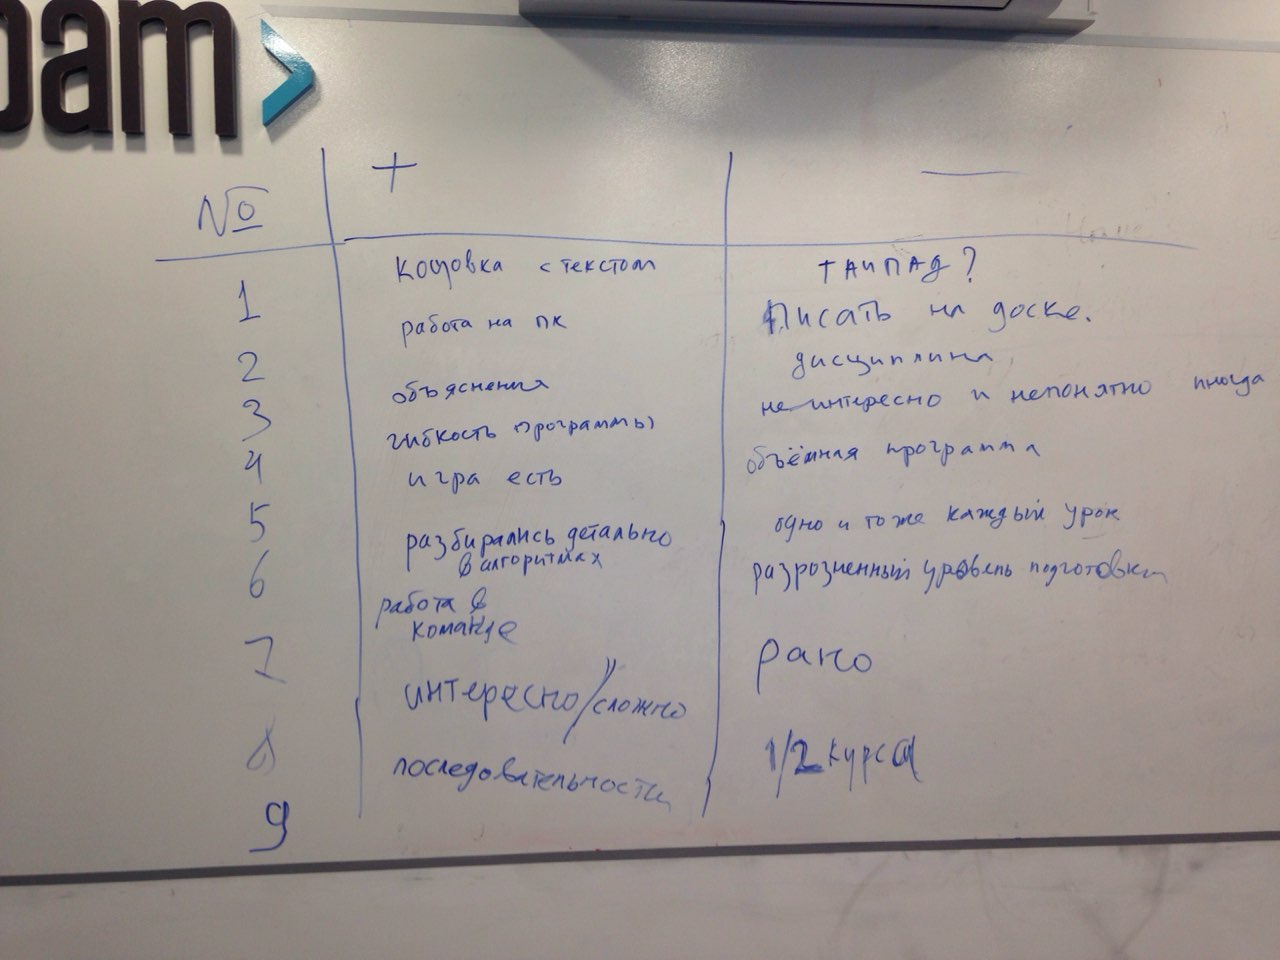 oam
№ + —
1 кодовка с текстом тайпад?
2 работа на пк Писать на доске.
3 объяснения дисциплина
4 гибкость программы неинтересно и непонятно иногда
5 игра есть объёмная программа
6 разбирались детально одно и тоже каждый урок
в алгоритмах
7 работа в разрозненный уровень подготовки
команде
8 интересно/сложно рано
9 последовательности 1/2 курса